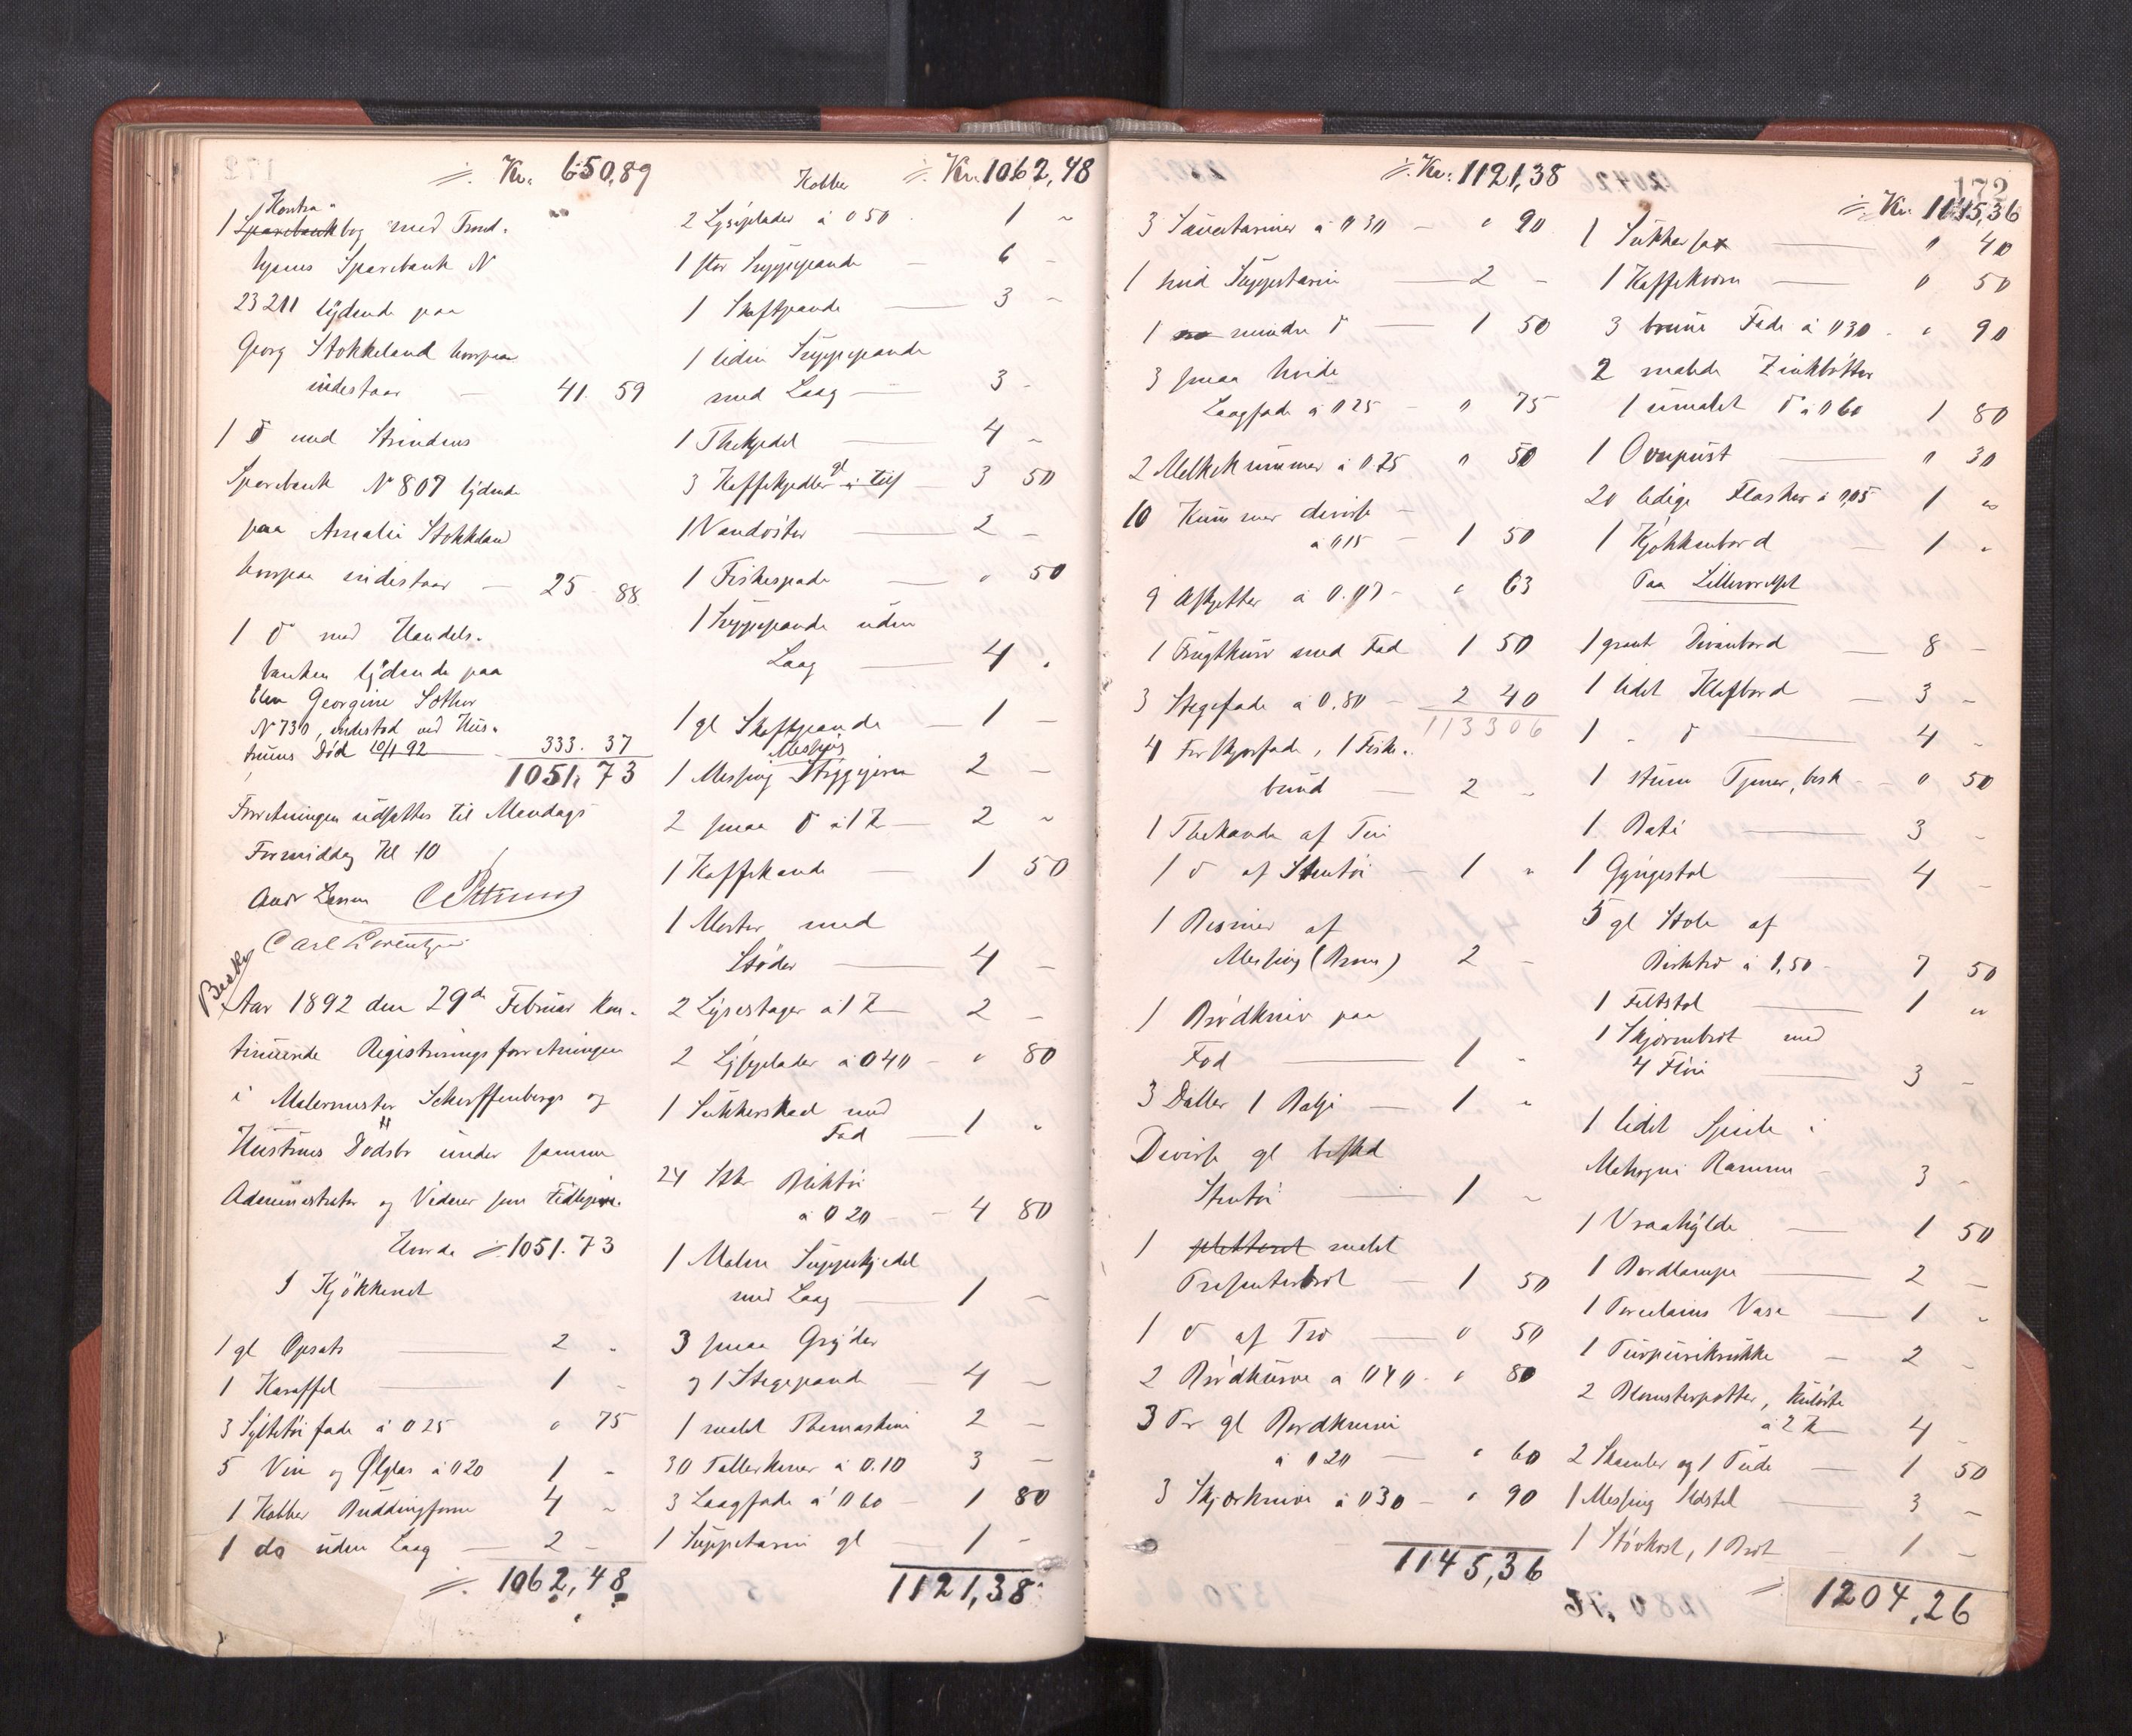 Kr. 650,89
Kontra-
1 Sparebankbog med Trond-
hjems Sparebank N
23211 lydende paa
Georg Stokkeland hvorpaa
indestaar - 41. 59
1 D med Strindens
Sparebank N 807 lydende
paa Amalie Stokkeland
hvorpaa indestaar - 25 88
1 D med Handels-
banken lydende paa
Elen Georgine Sother
N 730, indestod ved Hus-
truens Död 10/1 92 333. 37
1051,73
Forretningen udsattes til Mandags
Formiddag Kl 10
Carl Lorentzen
Besky
Aar 1892 den 29de Februar kon-
tinuerede Registreringsforretningen
i Malermester Scherffenbergs og
Hustrues Dödsbo under samme
Administrator og Vidner som tidligere.
Overfört 1051.73
I Kjökkenet
1 gl Opsats 2 -
1 Karaffel 1 -
3 Syltetöi fade à 0 25 " 75
5 Vin og Ølglas à 0 20 1 -
1 Kobber Buddingform 4 -
1 do uden Laag 2 -
1062,48
Kobber Kr. 1062,48
2 Lyseplader à 0 50 1 -
1 stor Suppepande 6 -
1 Skaftpande 3 -
1 liden Suppepande
med Laag 3 -
1 Thekjedel 4 -
3 Kaffekjedler gl 3 50
1 Vandöser 2 -
1 Fiskespade " 50
1 Suppepande uden
Laag 4 .
1 gl Skaftpande 1 -
Messing
1 Messing Strygejern 2 -
2 smaa D à 1 Kr 2 -
1 Kaffekande 1 50
1 Morter med
Stöder 4 -
2 Lysestager à 1 Kr 2 -
2 Lyseplader à 0 40 " 80
1 Sukkerskaal med
Fad 1 "
24 Stkr Bliktöi
à 0 20 4 80
1 Malm Suppekjedel
med Laag 1 -
3 smaa Gryder
og 1 Stegepande 4 -
1 malet Themaskine 2 -
30 Tallerkener à 0.10 3 -
3 Laagfade à 0 60 1 80
1 Suppeterrin gl 1 -
1121,38
Kr. 1121,38
3 Sauceterriner à 0 30 " 90
1 hvid Suppeterrin 2 -
1 mindre D 1 50
3 smaa hvide
Laagfade à 0 25 " 75
2 Melkekummer à 0.25 " 50
10 Kummer diverse
à 0 15 1 50
9 Asjetter à 0.07 " 63
1 Frugtkurv med Fad 1 50
3 Stegefade à 0.80 2 40
113306
4 Forskjærfade, 1 Fiske-
bund 2 -
1 Thekande af Tin
1 D af Stentöi 1 "
1 Bismer af
Messing (Brons) 2 -
1 Brödkniv paa
Fod 1 -
3 Daller 1 Balje 1 "
Diverse gl beskad
Stentöi 1 -
1 plettered malet
Presenterbret 1 50
1 D af Træ " 50
2 Brödkurve à 0 40 " 80
3 Par gl Bordknive
à 0 20 " 60
3 Skjærknive à 0 30 " 90
1145,36
172
Kr. 1145,36
1 Sukkersax " 40
1 Kaffekværn " 50
3 brune Fade à 0 30 " 90
2 malede Zinkbötter
1 umalet D à 0 60 1 80
1 Ovnpust " 30
20 ledige Flasker à 0,05 1 "
1 Kjökkenbord 1 "
Paa Lilleværelset
1 grønt Divanbord 8 -
1 lidet Klafbord 3 -
1 " D 4 -
1 stum Tjener, besk " 50
1 Buti 3 -
1 Gyngestol 4 -
5 gl Stole af
Birketræ à 1,50 7 50
1 Feltstol 1 "
1 Skjærmbret med
4 Flöie 3 -
1 lidet Speile i
Mahogni Ramme 3 -
1 Vraahylde 1 50
1 Bordlampe 2 -
1 Porcelains Vase 1 "
1 Purpurikrukke 2 -
2 Blomsterpotter, kulørte
à 2 Kr 4 -
2 Skamler og 1 Pude 1 50
1 Messing Ildstel 3 -
1 Stövkost, 1 Bret 1 -
1204,26